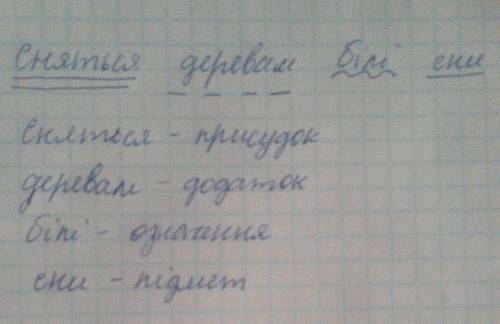 Сняться деревам білі сни
Сняться - присудок
деревам - додаток
білі - означення
сни - підмет